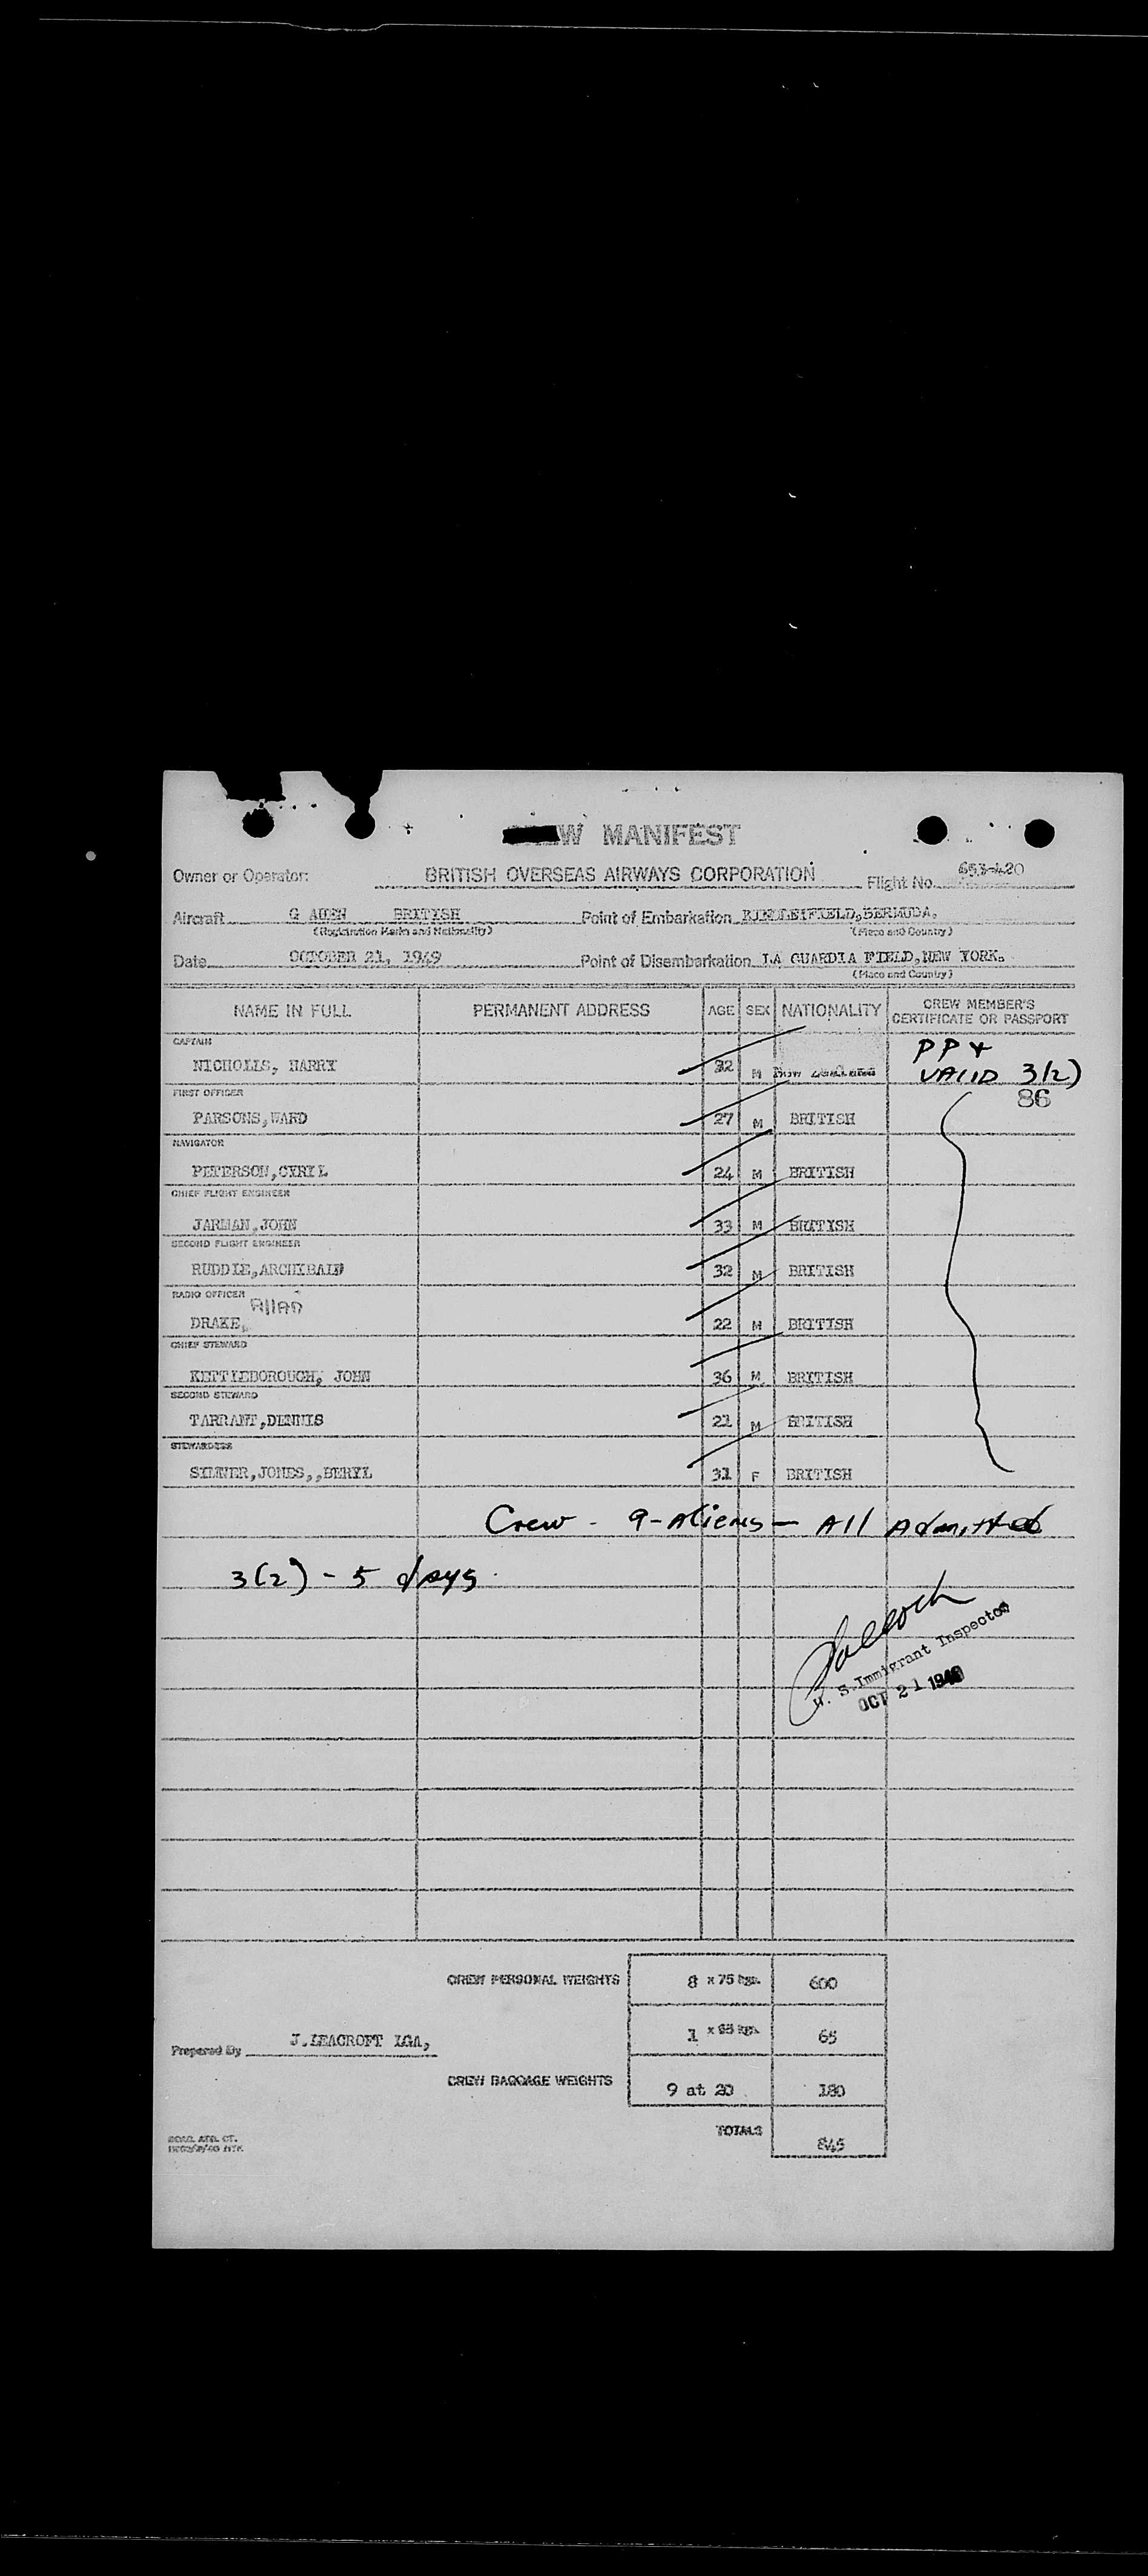 W MANIFEST
Owner or Operator: BRITISH OVERSEAS AIRWAYS CORPORATION Flight No. 653-420
Aircraft G BRITISH Point of Embarkation KINDLEYFIELD, BERMUDA,
(Registration Marks and Nationality) (Place and Country)
Date OCTOBER 21, 1949 Point of Disembarkation LA GUARDIA FIELD, NEW YORK.
(Place and Country)
NAME IN FULL PERMANENT ADDRESS AGE SEX NATIONALITY CREW MEMBER'S CERTIFICATE OR PASSPORT
CAPTAIN
NICHOLLS, HARRY 32 M New Zealand PP & VALID 3(2)
FIRST OFFICER 86
PARSONS, WARD 27 M BRITISH
NAVIGATOR
PETERSON, CYRIL 24 M BRITISH
CHIEF FLIGHT ENGINEER
JARMAN, JOHN 33 M BRITISH
SECOND FLIGHT ENGINEER
RUDDIE, ARCHIBALD 32 M BRITISH
RADIO OFFICER
DRAKE, Allan 22 M BRITISH
CHIEF STEWARD
KETTLEBOROUGH, JOHN 36 M BRITISH
SECOND STEWARD
TARRANT, DENNIS 21 M BRITISH
STEWARDESS
JONES,,BERYL 31 F BRITISH
Crew - 9-Aliens - All Admitted
3(2) - 5 days.
U. S. Immigrant Inspector
OCT 21 1949
CREW PERSONAL WEIGHTS 8 x 75 kgs. 600
1 x 65 kgs. 65
Prepared By J. LEACROFT LGA,
CREW BAGGAGE WEIGHTS 9 at 20 180
TOTALS 845